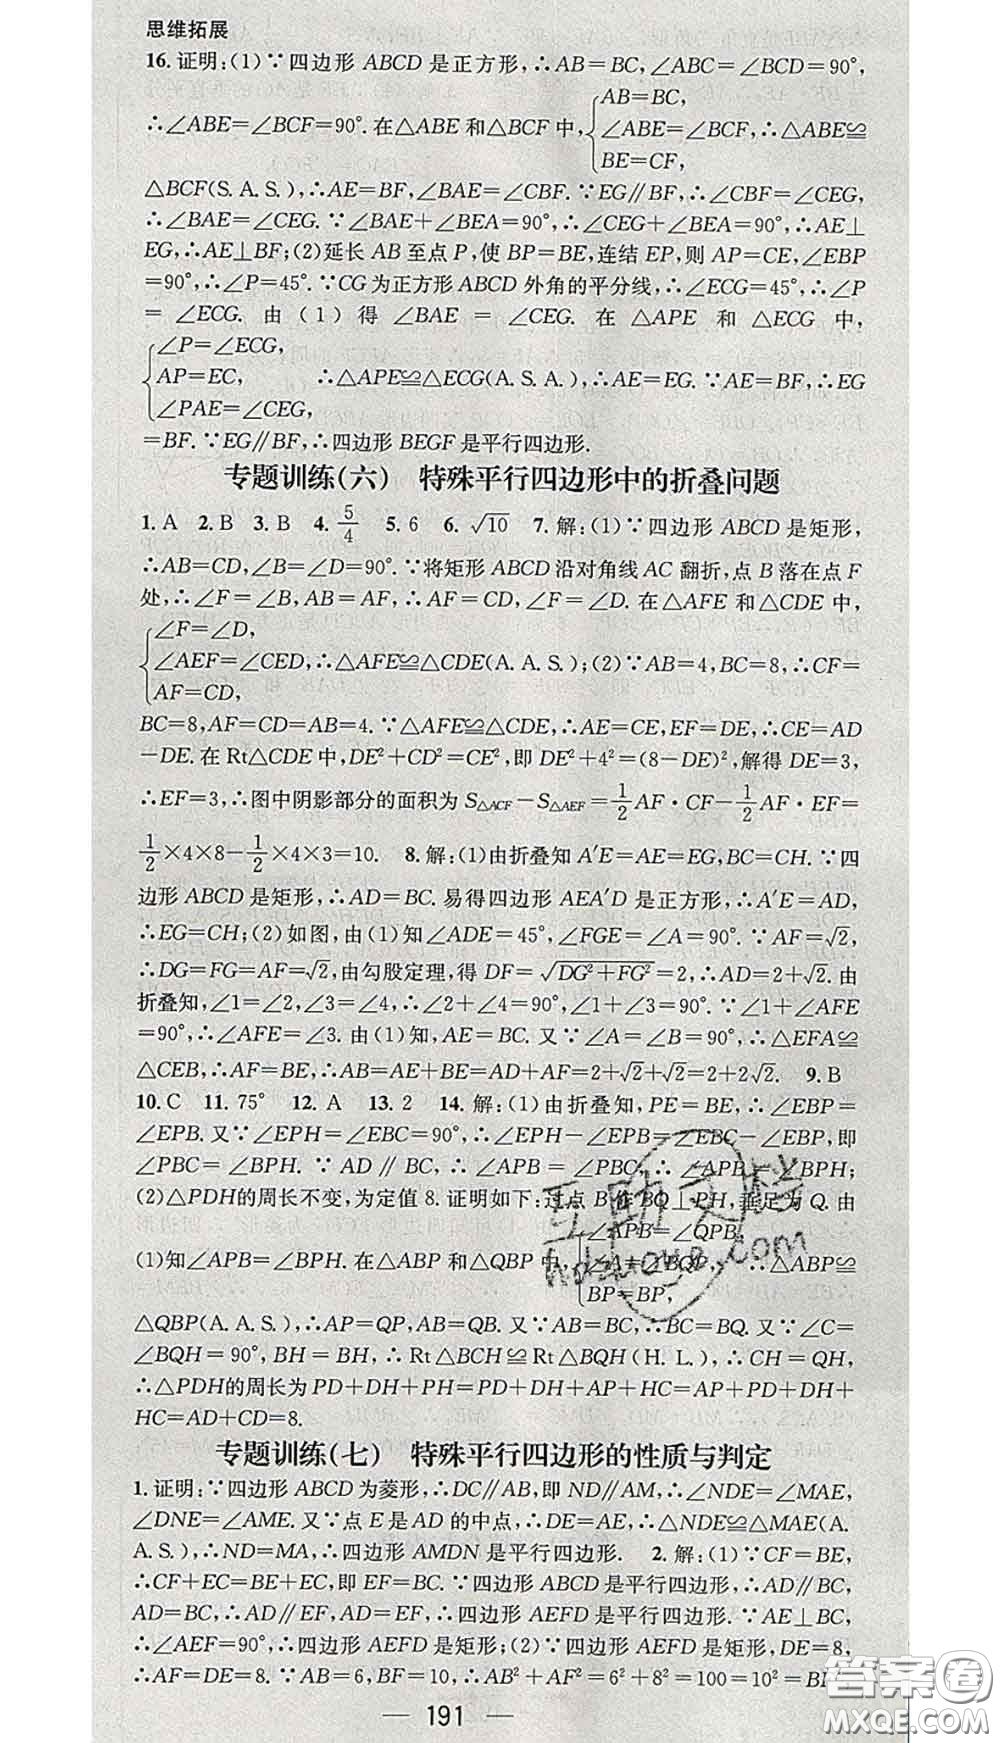 思维拓展
16.证明:(1)∵四边形ABCD是正方形,∴AB=BC,∠ABC=∠BCD=90°,
AB=BC,
∴∠ABE=∠BCF=90°.在△ABE和△BCF中,∠ABE=∠BCF,∴△ABE≌
BE=CF,
△BCF(S.A.S.),∴AE=BF,∠BAE=∠CBF.∵EG∥BF,∴∠CBF=∠CEG,
∴∠BAE=∠CEG.∵∠BAE+∠BEA=90°,∴∠CEG+∠BEA=90°,∴AE⊥
EG,∴AE⊥BF;(2)延长AB至点P,使BP=BE,连结EP,则AP=CE,∠EBP
=90°,∴∠P=45°.∵CG为正方形ABCD外角的平分线,∴∠ECG=45°,∴∠P
=∠ECG.由(1)得∠BAE=∠CEG.在△APE和△ECG中,
∠P=∠ECG,
AP=EC, ∴△APE≌△ECG(A.S.A.),∴AE=EG.∵AE=BF,∴EG
∠PAE=∠CEG,
=BF.∵EG∥BF,∴四边形BEGF是平行四边形.
专题训练(六) 特殊平行四边形中的折叠问题
1.A 2.B 3.B 4.5/4 5.6 6.√10 7.解:(1)∵四边形ABCD是矩形,
∴AB=CD,∠B=∠D=90°.∵将矩形ABCD沿对角线AC翻折,点B落在点F
处,∴∠F=∠B,AB=AF,∴AF=CD,∠F=∠D.在△AFE和△CDE中,
∠F=∠D,
∠AEF=∠CED,∴△AFE≌△CDE(A.A.S.);(2)∵AB=4,BC=8,∴CF=
AF=CD,
BC=8,AF=CD=AB=4.∵△AFE≌△CDE,∴AE=CE,EF=DE,∴CE=AD
-DE.在Rt△CDE中,DE²+CD²=CE²,即DE²+4²=(8-DE)²,解得DE=3,
∴EF=3,∴图中阴影部分的面积为S△ACF-S△AEF=1/2AF·CF-1/2AF·EF=
1/2×4×8-1/2×4×3=10. 8.解:(1)由折叠知A'E=AE=EG,BC=CH.∵四
边形ABCD是矩形,∴AD=BC.易得四边形AEA'D是正方形,∴A'E=AD,
∴EG=CH;(2)如图,由(1)知∠ADE=45°,∠FGE=∠A=90°.∵AF=√2,
∴DG=FG=AF=√2,由勾股定理,得DF=√DG²+FG²=2,∴AD=2+√2.由
折叠知,∠1=∠2,∠3=∠4,∴∠2+∠4=90°,∠1+∠3=90°.∵∠1+∠AFE
=90°,∴∠AFE=∠3.由(1)知,AE=BC.又∵∠A=∠B=90°,∴△EFA≌
△CEB,∴AF=BE,∴AB=AE+BE=AD+AF=2+√2+√2=2+2√2. 9.B
10.C 11.75° 12.A 13.2 14.解:(1)由折叠知,PE=BE,∴∠EBP=
∠EPB.又∵∠EPH=∠EBC=90°,∴∠EPH-∠EPB=∠EBC-∠EBP,即
∠PBC=∠BPH.∵AD∥BC,∴∠APB=∠PBC,∴∠APB=∠BPH;
(2)△PDH的周长不变,为定值8.证明如下:过点B作BQ⊥PH,垂足为Q.由
∠APB=∠QPB,
(1)知∠APB=∠BPH.在△ABP和△QBP中,∠A=∠BQP,∴△ABP≌
BP=BP,
△QBP(A.A.S.),∴AP=QP,AB=QB.又∵AB=BC,∴BC=BQ.又∵∠C=
∠BQH=90°,BH=BH,∴Rt△BCH≌Rt△BQH(H.L.),∴CH=QH,
∴△PDH的周长为PD+DH+PH=PD+DH+AP+HC=AP+PD+DH+
HC=AD+CD=8.
专题训练(七) 特殊平行四边形的性质与判定
1.证明:∵四边形ABCD为菱形,∴DC∥AB,即ND∥AM,∴∠NDE=∠MAE,
∠DNE=∠AME.又∵点E是AD的中点,∴DE=AE,∴△NDE≌△MAE(A.
A.S.),∴ND=MA,∴四边形AMDN是平行四边形. 2.解:(1)∵CF=BE,
∴CF+EC=BE+EC,即EF=BC.∵四边形ABCD是平行四边形,∴AD∥BC,
AD=BC,∴AD∥EF,AD=EF,∴四边形AEFD是平行四边形.∵AE⊥BC,
∴∠AEF=90°,∴四边形AEFD是矩形;(2)∵四边形AEFD是矩形,DE=8,
∴AF=DE=8.∵AB=6,BF=10,∴AB²+AF²=6²+8²=100=10²=B
— 191 —
互助文档
hdzuoye.com
答案圈
MXQE.COM